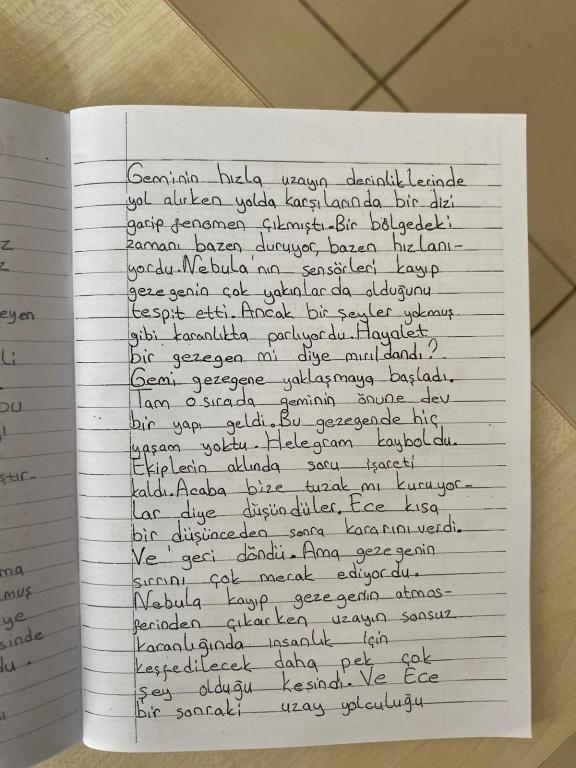 z
z
eyen
li
bu
ştır-
ma
muş
ye
sinde
du.
Geminin hızla uzayın derinliklerinde
yol alırken yolda karşılarında bir dizi
garip fenomen çıkmıştı. Bir bölgedeki
zamanı bazen duruyor, bazen hızlanı-
yordu. Nebula'nın sensörleri kayıp
gezegenin çok yakınlarda olduğunu
tespit etti. Ancak bir şeyler yokmuş
gibi karanlıkta parlıyordu. Hayalet
bir gezegen mi diye mırıldandı?
Gemi gezegene yaklaşmaya başladı.
Tam o sırada geminin önüne dev
bir yapı geldi. Bu gezegende hiç
yaşam yoktu. Helegram kayboldu.
Ekiplerin aklında soru işareti
kaldı. Acaba bize tuzak mı kuruyor-
lar diye düşündüler. Ece kısa
bir düşünceden sonra kararını verdi.
Ve geri döndü. Ama gezegenin
sırrını çok merak ediyordu.
Nebula kayıp gezegenin atmos-
ferinden çıkarken uzayın sonsuz
karanlığında insanlık için
keşfedilecek daha pek çok
şey olduğu kesindi. Ve Ece
bir sonraki uzay yolculuğu